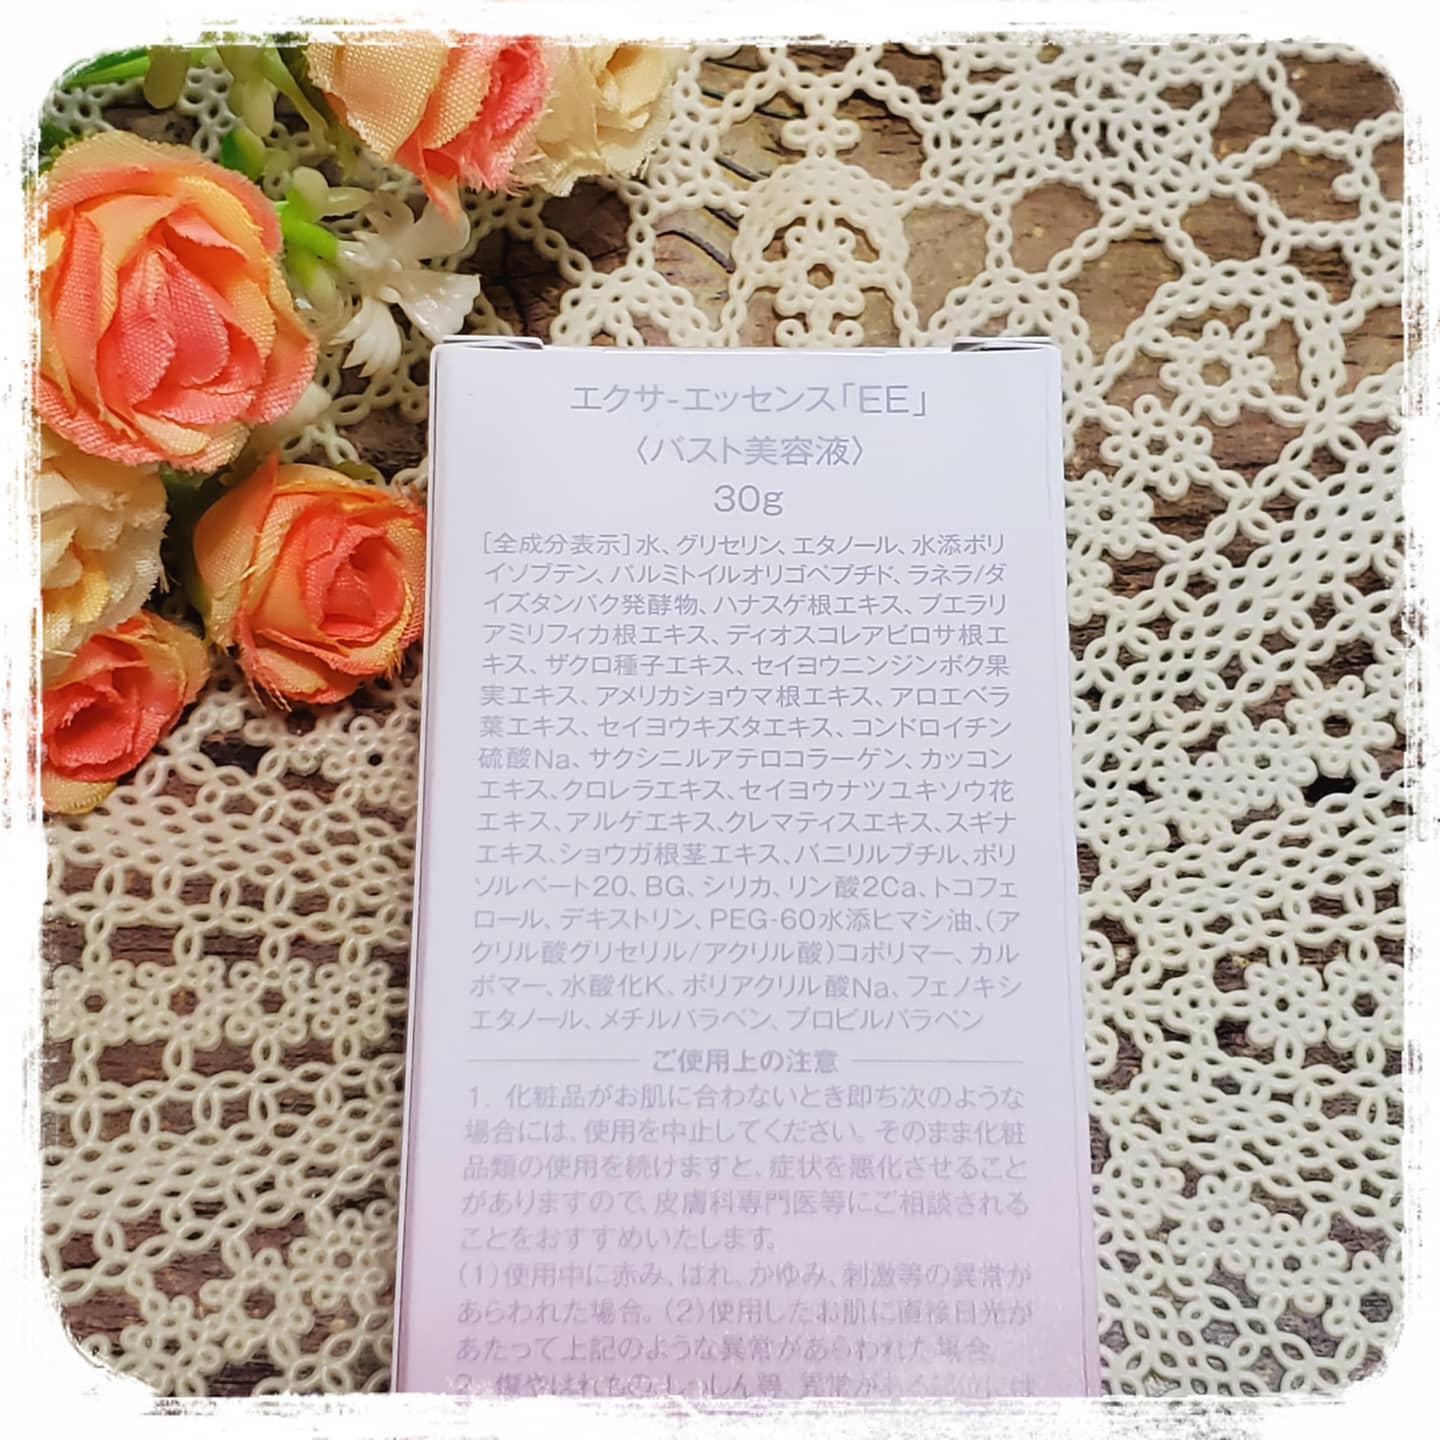 エクサ-エッセンス「EE」
〈バスト美容液〉
30g
[全成分表示]水、グリセリン、エタノール、水添ポリ
イソブテン、パルミトイルオリゴペプチド、ラネラ/ダ
イズタンパク発酵物、ハナスゲ根エキス、プエラリ
アミリフィカ根エキス、ディオスコレアビロサ根エ
キス、ザクロ種子エキス、セイヨウニンジンボク果
実エキス、アメリカショウマ根エキス、アロエベラ
葉エキス、セイヨウキズタエキス、コンドロイチン
硫酸Na、サクシニルアテロコラーゲン、カッコン
エキス、クロレラエキス、セイヨウナツユキソウ花
エキス、アルゲエキス、クレマティスエキス、スギナ
エキス、ショウガ根茎エキス、バニリルブチル、ポリ
ソルベート20、BG、シリカ、リン酸2Ca、トコフェ
ロール、デキストリン、PEG-60水添ヒマシ油、(ア
クリル酸グリセリル/アクリル酸)コポリマー、カル
ボマー、水酸化K、ポリアクリル酸Na、フェノキシ
エタノール、メチルパラベン、プロピルパラベン
ご使用上の注意
1. 化粧品がお肌に合わないとき即ち次のような
場合には、使用を中止してください。そのまま化粧
品類の使用を続けますと、症状を悪化させること
がありますので、皮膚科専門医等にご相談される
ことをおすすめいたします。
(1)使用中に赤み、はれ、かゆみ、刺激等の異常が
あらわれた場合。(2)使用したお肌に直接日光が
あたって上記のような異常があらわれた場合
2. 傷やはれもの、しっしん等、異常がある部位には